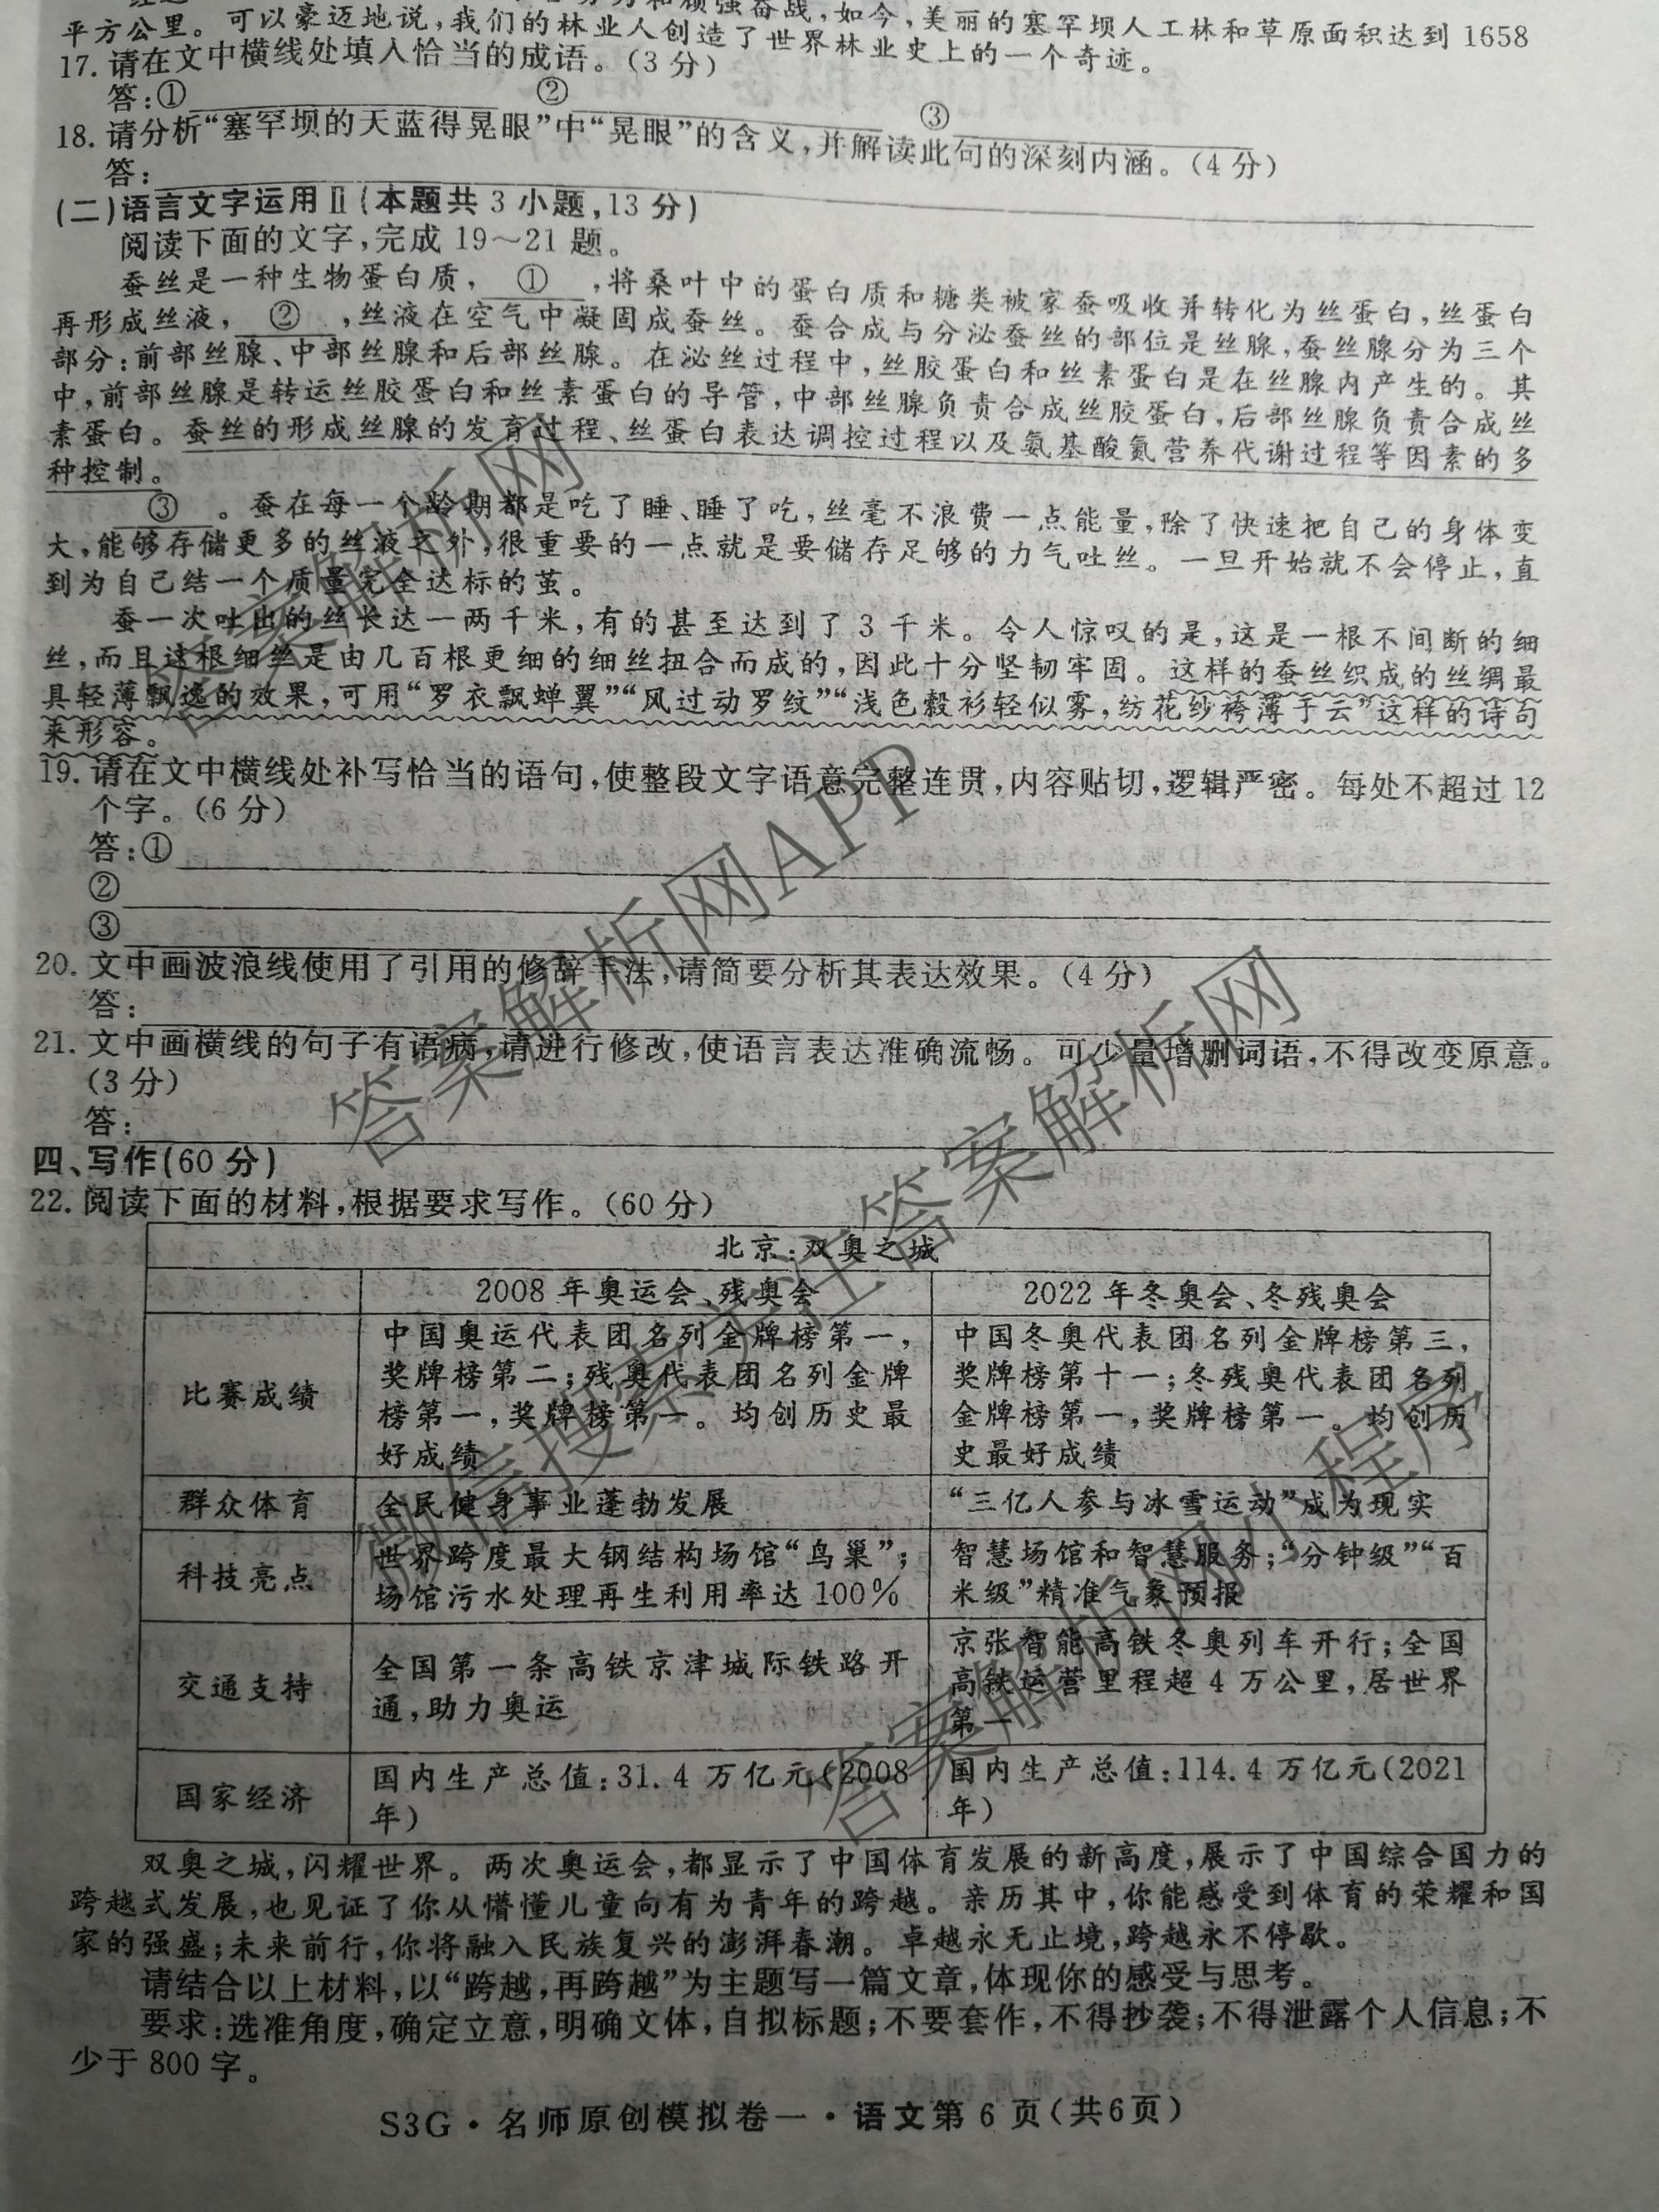 平方公里。可以豪迈地说,我们的林业人创造了世界林业史上的一个奇迹。
顽强奋战,如今,美丽的塞罕坝人工林和草原面积达到 1658
17. 请在文中横线处填入恰当的成语。(3 分)
答:① ② ③
18. 请分析“塞罕坝的天蓝得晃眼”中“晃眼”的含义,并解读此句的深刻内涵。(4 分)
答:
(二)语言文字运用Ⅱ(本题共 3 小题,13 分)
阅读下面的文字,完成 19～21 题。
蚕丝是一种生物蛋白质, ① ,将桑叶中的蛋白质和糖类被家蚕吸收并转化为丝蛋白,丝蛋白
再形成丝液, ② ,丝液在空气中凝固成蚕丝。蚕合成与分泌蚕丝的部位是丝腺,蚕丝腺分为三个
部分:前部丝腺、中部丝腺和后部丝腺。在泌丝过程中,丝胶蛋白和丝素蛋白是在丝腺内产生的。其
中,前部丝腺是转运丝胶蛋白和丝素蛋白的导管,中部丝腺负责合成丝胶蛋白,后部丝腺负责合成丝
素蛋白。蚕丝的形成丝腺的发育过程、丝蛋白表达调控过程以及氨基酸氮营养代谢过程等因素的多
种控制。
③ 。蚕在每一个龄期都是吃了睡、睡了吃,丝毫不浪费一点能量,除了快速把自己的身体变
大,能够存储更多的丝液之外,很重要的一点就是要储存足够的力气吐丝。一旦开始就不会停止,直
到为自己结一个质量完全达标的茧。
蚕一次吐出的丝长达一两千米,有的甚至达到了 3 千米。令人惊叹的是,这是一根不间断的细
丝,而且这根细丝是由几百根更细的细丝扭合而成的,因此十分坚韧牢固。这样的蚕丝织成的丝绸最
具轻薄飘逸的效果,可用“罗衣飘蝉翼”“风过动罗纹”“浅色縠衫轻似雾,纺花纱袴薄于云”这样的诗句
来形容。
19. 请在文中横线处补写恰当的语句,使整段文字语意完整连贯,内容贴切,逻辑严密。每处不超过 12
个字。(6 分)
答:①
②
③
20. 文中画波浪线使用了引用的修辞手法,请简要分析其表达效果。(4 分)
答:
21. 文中画横线的句子有语病,请进行修改,使语言表达准确流畅。可少量增删词语,不得改变原意。
(3 分)
答:
四、写作(60 分)
22. 阅读下面的材料,根据要求写作。(60 分)
北京:双奥之城
2008 年奥运会、残奥会
2022 年冬奥会、冬残奥会
比赛成绩
中国奥运代表团名列金牌榜第一,
奖牌榜第二;残奥代表团名列金牌
榜第一,奖牌榜第一。均创历史最
好成绩
中国冬奥代表团名列金牌榜第三,
奖牌榜第十一;冬残奥代表团名列
金牌榜第一,奖牌榜第一。均创历
史最好成绩
群众体育
全民健身事业蓬勃发展
“三亿人参与冰雪运动”成为现实
科技亮点
世界跨度最大钢结构场馆“鸟巢”;
场馆污水处理再生利用率达 100%
智慧场馆和智慧服务;“分钟级”“百
米级”精准气象预报
交通支持
全国第一条高铁京津城际铁路开
通,助力奥运
京张智能高铁冬奥列车开行;全国
高铁运营里程超 4 万公里,居世界
第一
国家经济
国内生产总值:31.4 万亿元(2008
年)
国内生产总值:114.4 万亿元(2021
年)
双奥之城,闪耀世界。两次奥运会,都显示了中国体育发展的新高度,展示了中国综合国力的
跨越式发展,也见证了你从懵懂儿童向有为青年的跨越。亲历其中,你能感受到体育的荣耀和国
家的强盛;未来前行,你将融入民族复兴的澎湃春潮。卓越永无止境,跨越永不停歇。
请结合以上材料,以“跨越,再跨越”为主题写一篇文章,体现你的感受与思考。
要求:选准角度,确定立意,明确文体,自拟标题;不要套作,不得抄袭;不得泄露个人信息;不
少于 800 字。
S3G·名师原创模拟卷一·语文第 6 页(共6页)
答案解析网
答案解析网APP
微信搜索关注答案解析网
答案解析网小程序